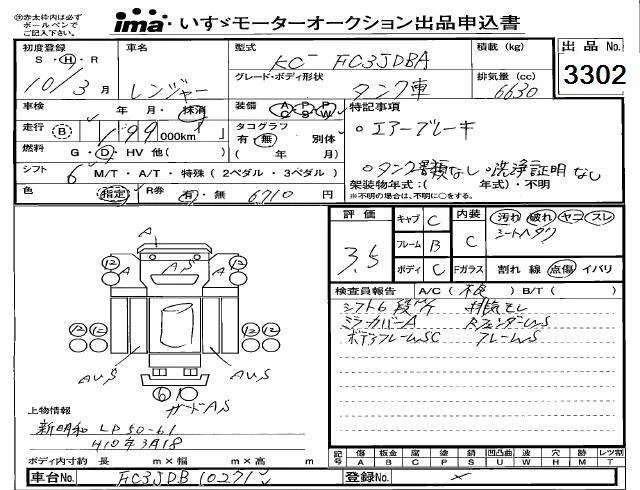 ※赤太枠内は必ず
ボールペンで
ご記入下さい。
ima いすゞモーターオークション出品申込書
初度登録 車名 型式 積載 (kg) 出品 No.
S・H・R KC- FC3JDBA 3302
10年3月 レンジャー グレード・ボディ形状 排気量 (cc)
タンク車 6630
車検 年 月・抹消 装備 AC PS PW 特記事項
走行 B 199 000km タコグラフ 有・無 別体 ・エアーブレーキ
燃料 G・D・HV 他( ) ( 年 月)
シフト 6 M/T・A/T・特殊 (2ペダル・3ペダル) ・タンク書類なし・洗浄証明なし
架装物年式:( 年式)・不明
色 指定 R券 有・無 6710 円 ※不明の場合は、不明に○をする。
評価 キャブ C 内装 汚れ 破れ ヤニ スレ
3.5 フレーム B C シートヘタク
ボディ C Fガラス 割れ 線 点傷 イバリ
検査員報告 A/C( 不良 ) B/T( )
シフト6段M/T 排気モレ
ミラーカバーA RフェンダーUS
ボデーフレームSC フレームS
A
AS
12 12
12 12
AUS AUS
6
ガードAS
上物情報
新明和 LP50-61
H10年3月18
ボディ内寸約 長 m×幅 m×高 m
記号 傷 板金 腐 塗 錆 凹凸曲 波 穴 跡 レツ割
A B C P S U W H M T
車台No. FC3JDB 10271 登録No.